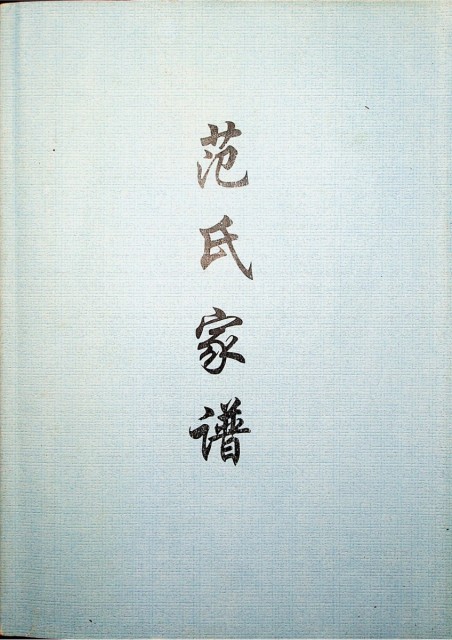 范氏家谱